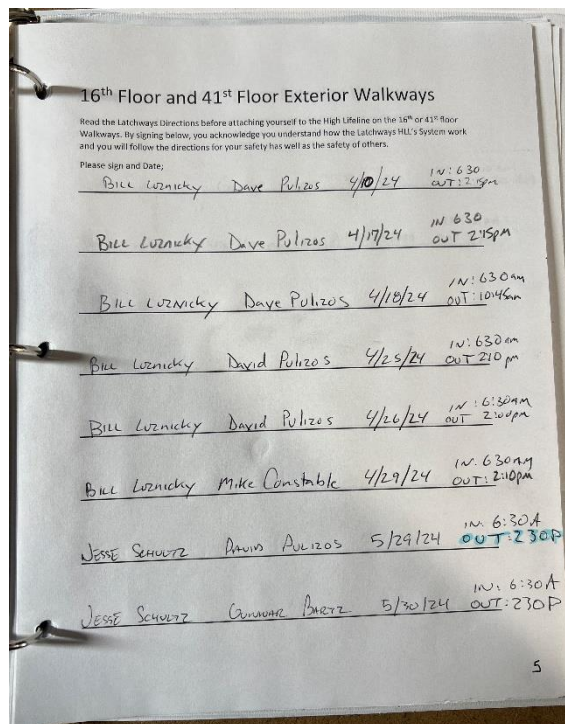 16th Floor and 41st Floor Exterior Walkways
Read the Latchways Directions before attaching yourself to the High Lifeline on the 16th or 41st floor
Walkways. By signing below, you acknowledge you understand how the Latchways HLL's System work
and you will follow the directions for your safety has well as the safety of others.
Please sign and Date;
IN: 630
BILL LUZNICKY Dave Pulizos 4/10/24 OUT: 2:15pm
IN 630
BILL LUZNICKY Dave Pulizos 4/17/24 OUT 2:15PM
IN: 630am
BILL LUZNICKY Dave Pulizos 4/18/24 OUT: 10:45am
IN: 630am
BILL LUZNICKY David Pulizos 4/25/24 OUT 2:10 pm
IN: 6:30AM
BILL LUZNICKY David Pulizos 4/26/24 OUT 2:00pm
IN. 630AM
BILL LUZNICKY Mike Constable 4/29/24 OUT: 2:10pm
IN: 6:30A
JESSE SCHULTZ DAVID PULIZOS 5/29/24 OUT: 230P
IN: 6:30A
JESSE SCHULTZ GUNNAR BARTZ 5/30/24 OUT: 230P
5